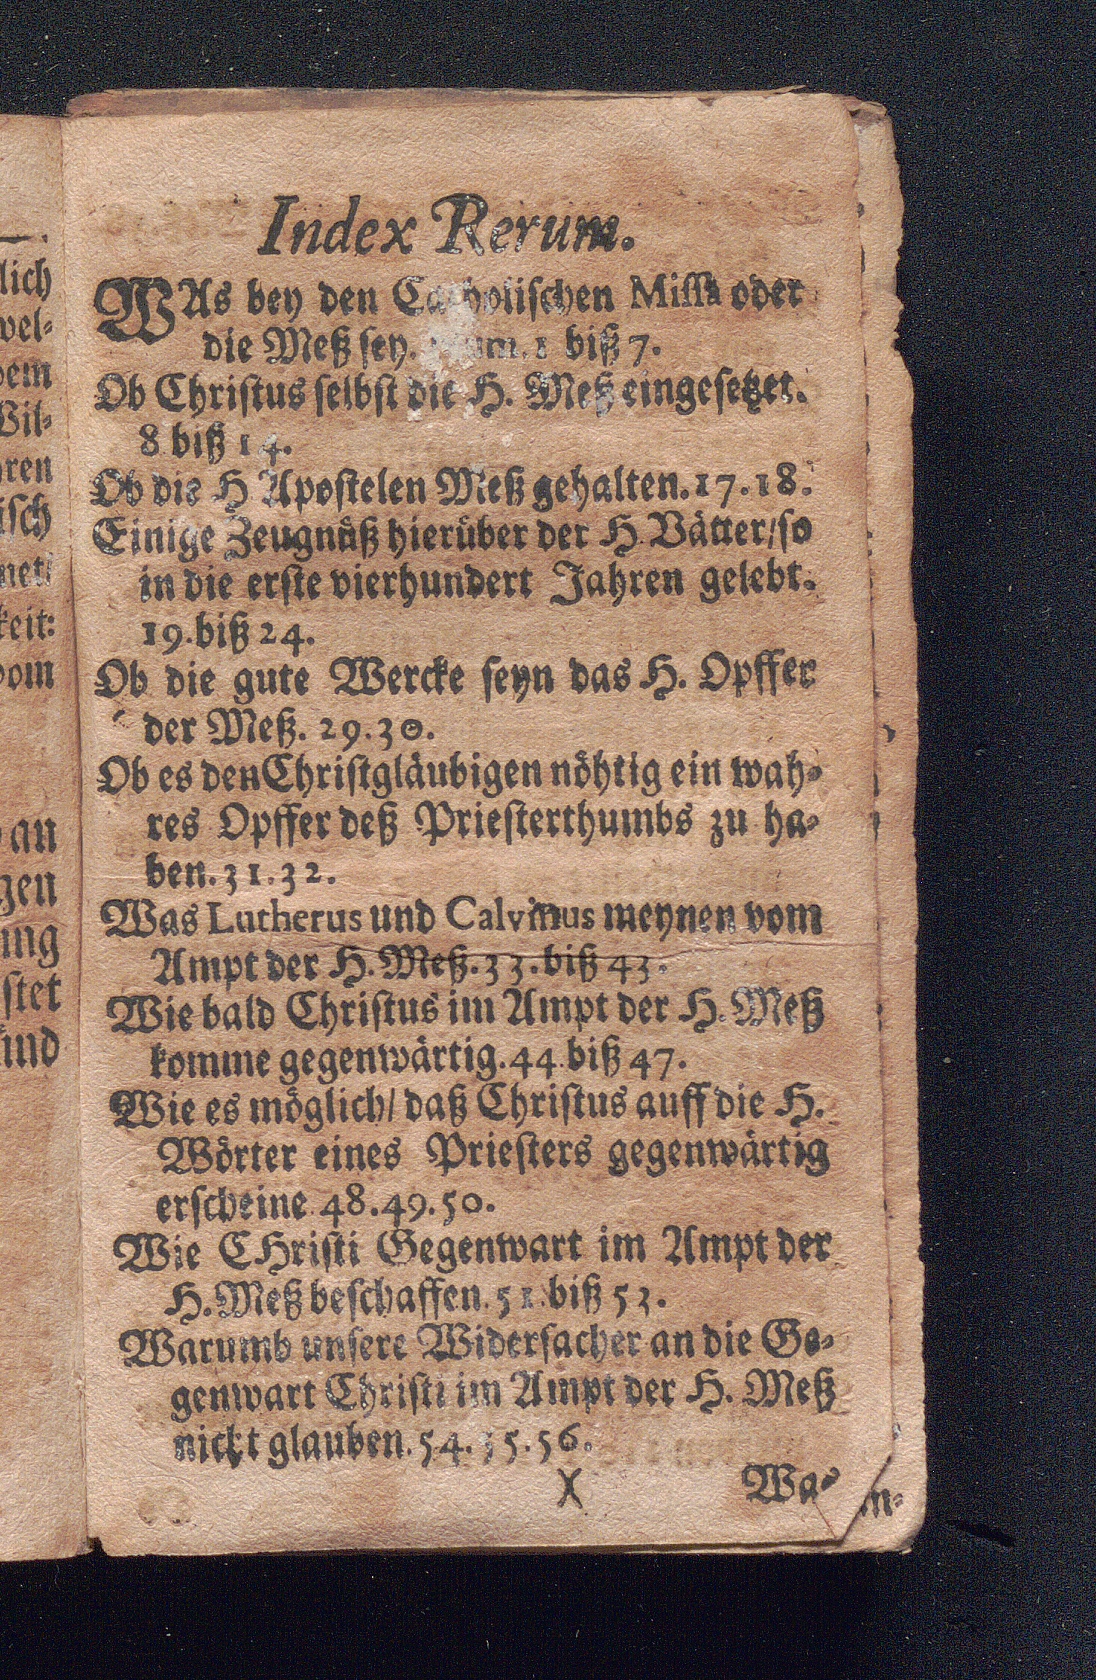 lich
wel-
dem
Wil-
hren
isch
net/
keit:
vom
an
gen
ing
stet
und
Index Rerum.
WAs bey den Catholischen Missa oder
die Meß sey. Num. 1 biß 7.
Ob Christus selbst die H. Meß eingesetzet.
8 biß 14.
Ob die H Apostelen Meß gehalten. 17. 18.
Einige Zeugnüß hierüber der H. Vätter/ so
in die erste vierhundert Jahren gelebt.
19. biß 24.
Ob die gute Wercke seyn das H. Opffer
der Meß. 29. 30.
Ob es den Christgläubigen nöhtig ein wah-
res Opffer deß Priesterthumbs zu ha-
ben. 31. 32.
Was Lutherus und Calvinus meynen vom
Ampt der H. Meß. 33. biß 43.
Wie bald Christus im Ampt der H. Meß
komme gegenwärtig. 44. biß 47.
Wie es möglich/ daß Christus auff die H.
Wörter eines Priesters gegenwärtig
erscheine. 48. 49. 50.
Wie CHristi Gegenwart im Ampt der
H. Meß beschaffen. 51. biß 53.
Warumb unsere Widersacher an die Ge-
genwart Christi im Ampt der H. Meß
nickt glauben. 54. 55. 56.
X Was